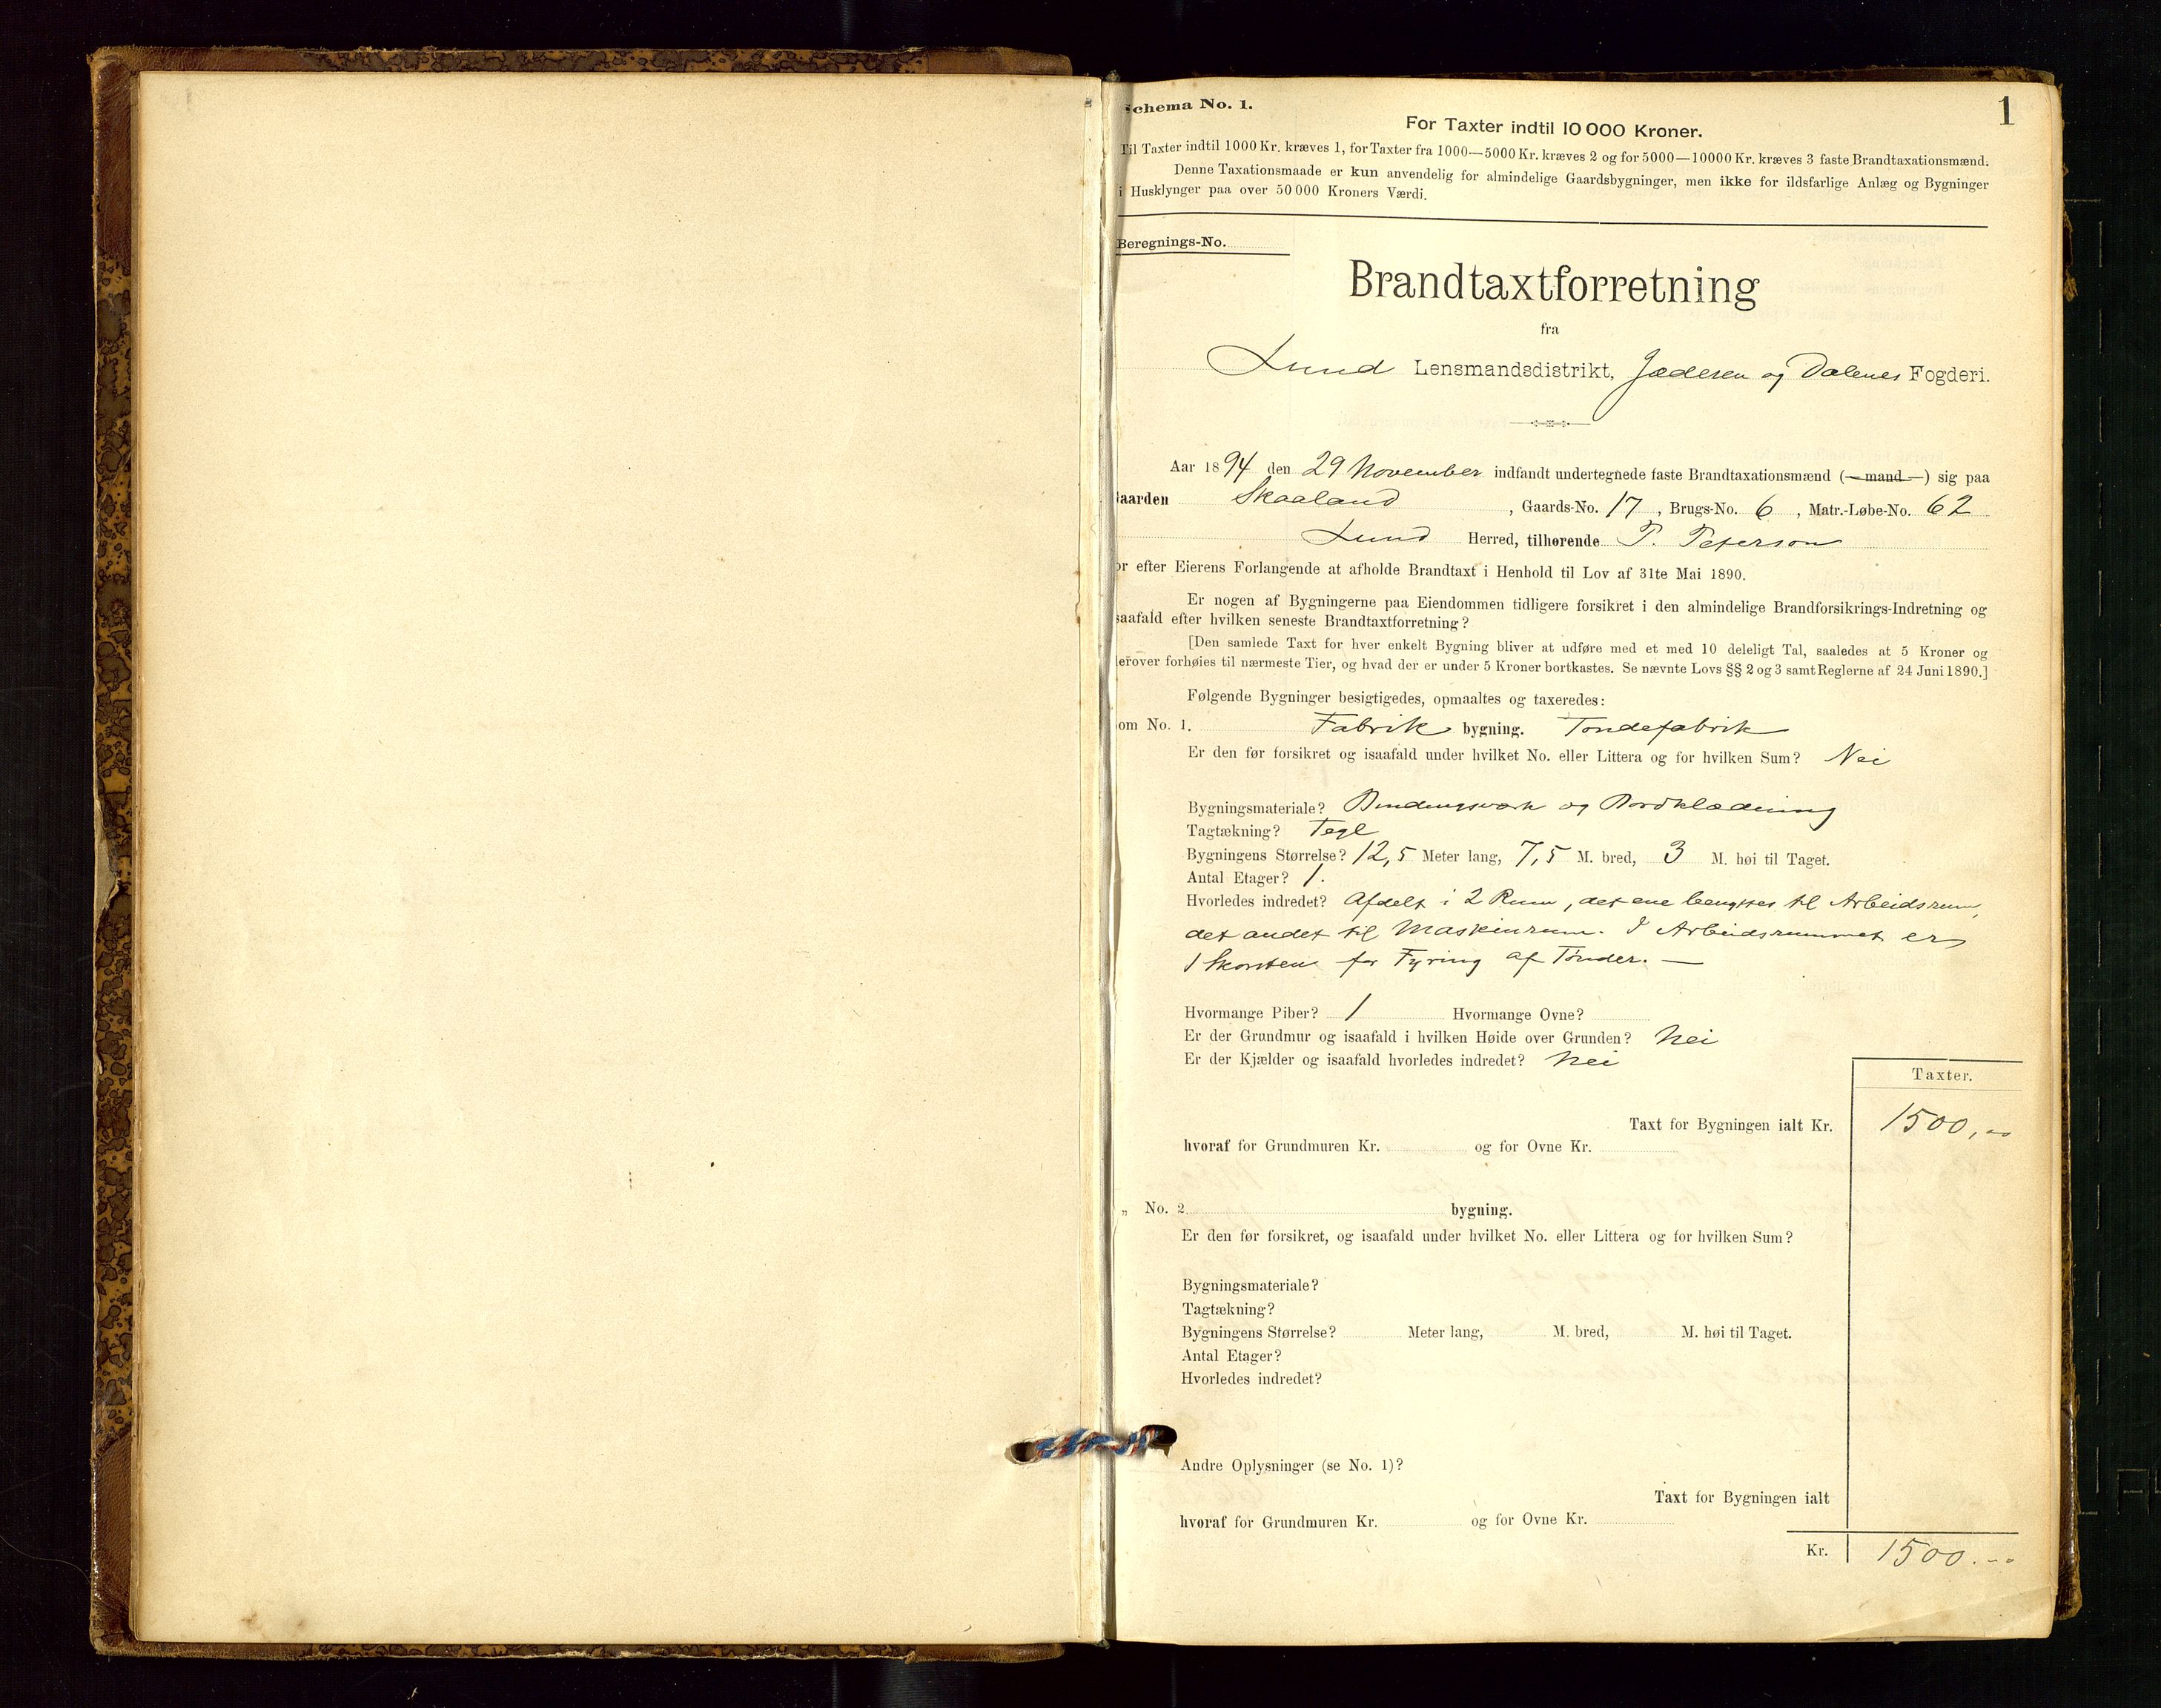 1
Schema No. 1.
For Taxter indtil 10 000 Kroner.
Til Taxter indtil 1000 Kr. kræves 1, for Taxter fra 1000—5000 Kr. kræves 2 og for 5000—10000 Kr. kræves 3 faste Brandtaxationsmænd.
Denne Taxationsmaade er kun anvendelig for almindelige Gaardsbygninger, men ikke for ildsfarlige Anlæg og Bygninger
i Husklynger paa over 50 000 Kroners Værdi.
Beregnings-No.
Brandtaxtforretning
fra
Lund Lensmandsdistrikt, Jæderen og Dalenes Fogderi.
Aar 1894 den 29 November indfandt undertegnede faste Brandtaxationsmænd (—mand—) sig paa
Gaarden Skaaland, Gaards-No. 17, Brugs-No. 6, Matr.-Løbe-No. 62
Lund Herred, tilhørende P. Peterson
or efter Eierens Forlangende at afholde Brandtaxt i Henhold til Lov af 31te Mai 1890.
Er nogen af Bygningerne paa Eiendommen tidligere forsikret i den almindelige Brandforsikrings-Indretning og
saafald efter hvilken seneste Brandtaxtforretning?
[Den samlede Taxt for hver enkelt Bygning bliver at udføre med et med 10 deleligt Tal, saaledes at 5 Kroner og
derover forhøies til nærmeste Tier, og hvad der er under 5 Kroner bortkastes. Se nævnte Lovs §§ 2 og 3 samt Reglerne af 24 Juni 1890.]
Følgende Bygninger besigtigedes, opmaaltes og taxeredes:
om No. 1. Fabrik bygning. Tondefabrik
Er den før forsikret og isaafald under hvilket No. eller Littera og for hvilken Sum? Nei
Bygningsmateriale? Bindingsværk og Bordklædning
Tagtækning? Tegl
Bygningens Størrelse? 12,5 Meter lang, 7,5 M. bred, 3 M. høi til Taget.
Antal Etager? 1.
Hvorledes indredet? Afdelt i 2 Rum, det ene benyttes til Arbeidsrum,
det andet til Maskinrum. I Arbeidsrummet er
1 Skorsten for Fyring af Tønder. —
Hvormange Piber? 1 Hvormange Ovne?
Er der Grundmur og isaafald i hvilken Høide over Grunden? Nei
Er der Kjælder og isaafald hvorledes indredet? Nei
Taxter.
Taxt for Bygningen ialt Kr. 1500,00
hvoraf for Grundmuren Kr. og for Ovne Kr.
„ No. 2. bygning.
Er den før forsikret, og isaafald under hvilket No. eller Littera og for hvilken Sum?
Bygningsmateriale?
Tagtækning?
Bygningens Størrelse? Meter lang, M. bred, M. høi til Taget.
Antal Etager?
Hvorledes indredet?
Andre Oplysninger (se No. 1)?
Taxt for Bygningen ialt
hvoraf for Grundmuren Kr. og for Ovne Kr.
Kr. 1500.00